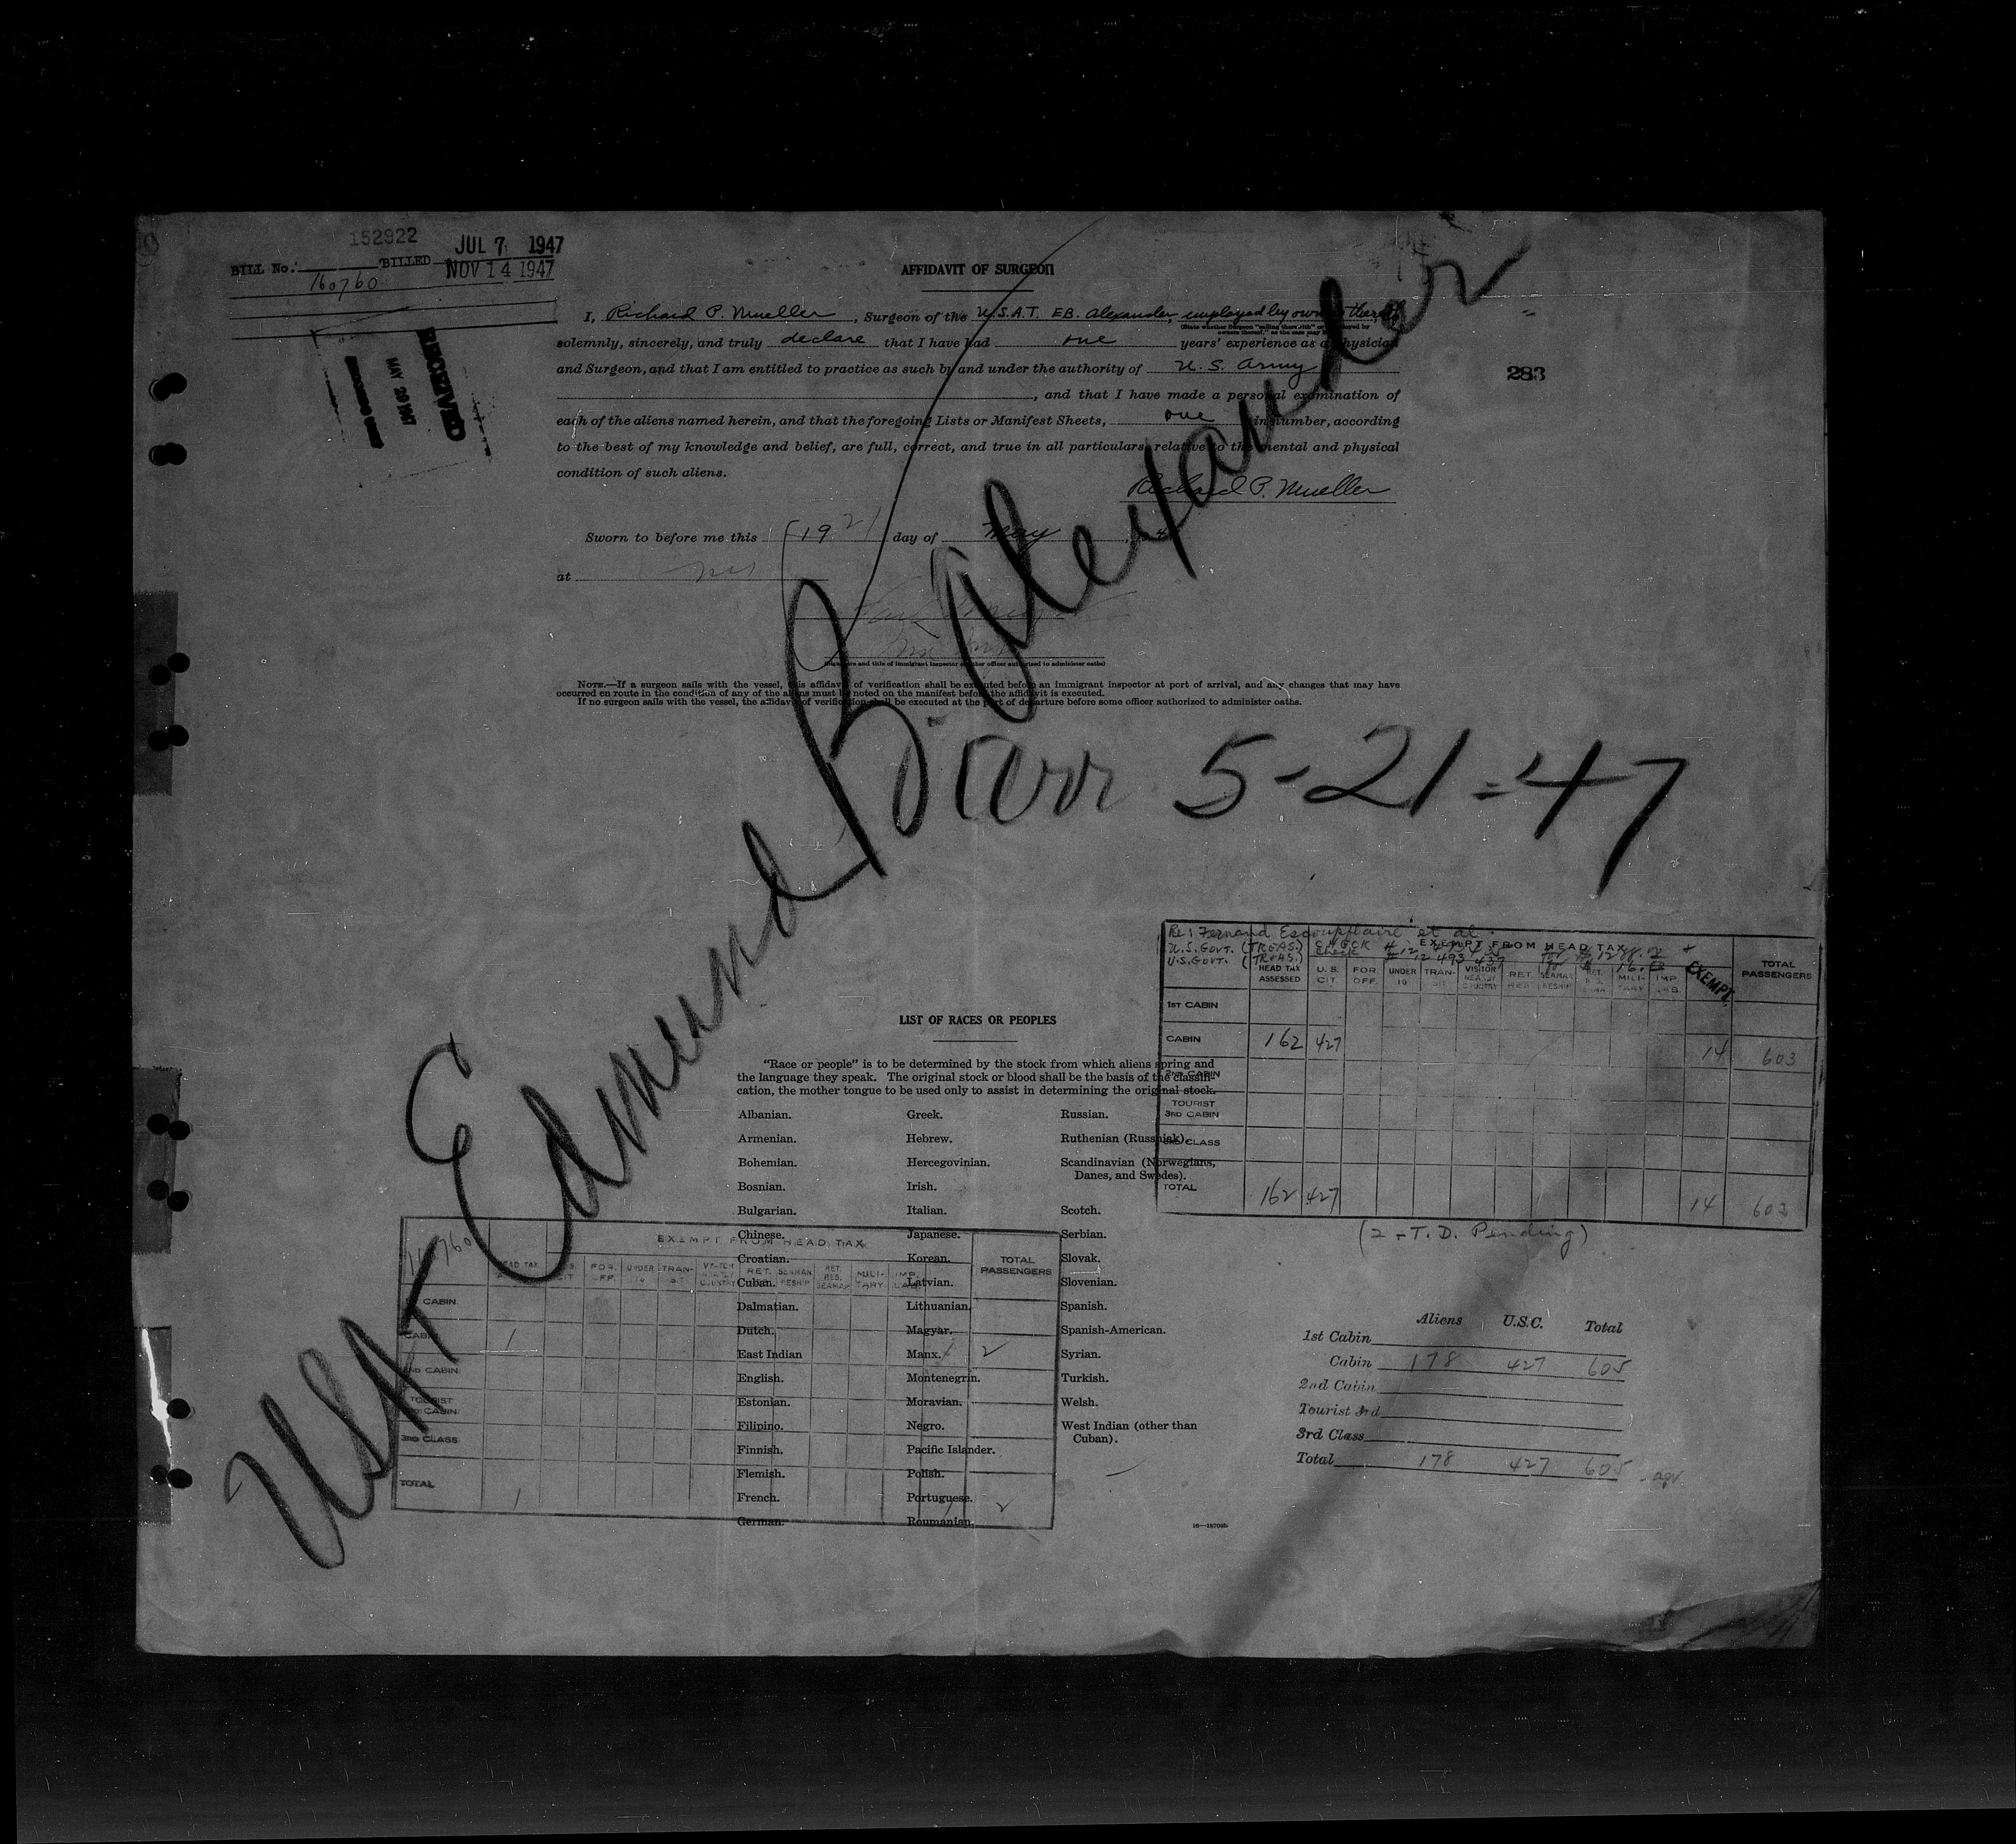 152922
JUL 7 1947
BILL No. BILLED
NOV 14 1947
160760
RECEIVED
MAY 29 1947
AFFIDAVIT OF SURGEON
I, Richard P. Mueller, Surgeon of the U.S.A.T. EB. Alexander, employed by owners thereof
solemnly, sincerely, and truly declare that I have had one years' experience as a physician
and Surgeon, and that I am entitled to practice as such by and under the authority of U. S. Army
, and that I have made a personal examination of
each of the aliens named herein, and that the foregoing Lists or Manifest Sheets, one in number, according
to the best of my knowledge and belief, are full, correct, and true in all particulars relative to the mental and physical
condition of such aliens.
Richard P. Mueller
283
Sworn to before me this 19 21 day of May
at
(Signature and title of immigrant inspector or other officer authorized to administer oaths)
NOTE.—If a surgeon sails with the vessel, this affidavit of verification shall be executed before an immigrant inspector at port of arrival, and any changes that may have
occurred en route in the condition of any of the aliens must be noted on the manifest before the affidavit is executed.
If no surgeon sails with the vessel, the affidavit of verification shall be executed at the port of departure before some officer authorized to administer oaths.
USAT Edmund B. Alexander
arr 5-21-47
Re: Fernand Escoupflaire et al.
U.S. GOVT. (TREAS.) CHECK
U.S. GOVT. (TREAS.) Check # 12 493 437
EXEMPT FROM HEAD TAX
HEAD TAX ASSESSED U. S. CIT. FOR OFF. UNDER 16 TRAN- SIT VISITOR NEARBY COUNTRY RET. RES. SEAMAN RESHIP MILI- TARY IMP. LAB. EXEMPT. TOTAL PASSENGERS
1ST CABIN
CABIN 162 427 14 603
2ND CABIN
TOURIST 3RD CABIN
3RD CLASS
TOTAL 162 427 14 603
(2 - T. D. Pending)
LIST OF RACES OR PEOPLES
"Race or people" is to be determined by the stock from which aliens spring and
the language they speak. The original stock or blood shall be the basis of the classifi-
cation, the mother tongue to be used only to assist in determining the original stock.
Albanian. Greek. Russian.
Armenian. Hebrew. Ruthenian (Russniak).
Bohemian. Hercegovinian. Scandinavian (Norwegians,
Danes, and Swedes).
Bosnian. Irish.
Bulgarian. Italian. Scotch.
Chinese. Japanese. Serbian.
Croatian. Korean. Slovak.
Cuban. Latvian. Slovenian.
Dalmatian. Lithuanian. Spanish.
Dutch. Magyar. Spanish-American.
East Indian Manx. Syrian.
English. Montenegrin. Turkish.
Estonian. Moravian. Welsh.
Filipino. Negro. West Indian (other than
Cuban).
Finnish. Pacific Islander.
Flemish. Polish.
French. Portuguese.
German. Roumanian.
160760
EXEMPT FROM HEAD TAX
HEAD TAX CIT. FOR. OFF. UNDER 16 TRAN- SIT VISITOR COUNTRY RET. SEAMAN RESHIP RET. RES. SEAMAN MILI- TARY IMP. LAB. TOTAL PASSENGERS
CABIN
CABIN 1 1 2
2ND CABIN
TOURIST 3RD CABIN
3RD CLASS
TOTAL 1 1 2
Aliens U.S.C. Total
1st Cabin
Cabin 178 427 605
2nd Cabin
Tourist 3rd
3rd Class
Total 178 427 605
16—18709b